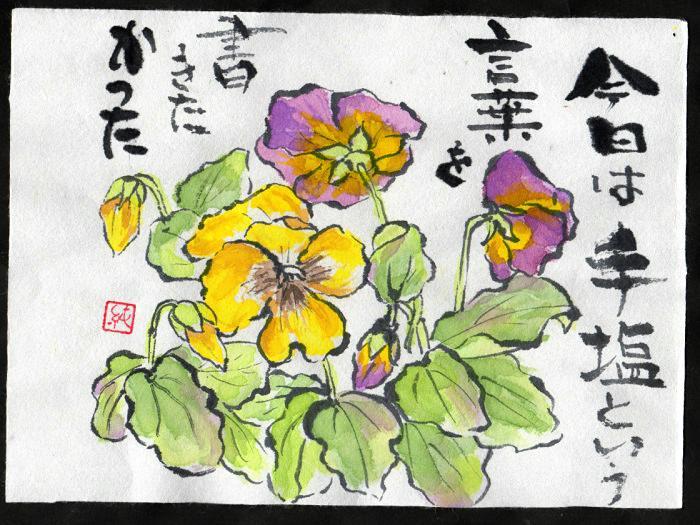 今日は手塩という
言葉を
書きたた
かった
純